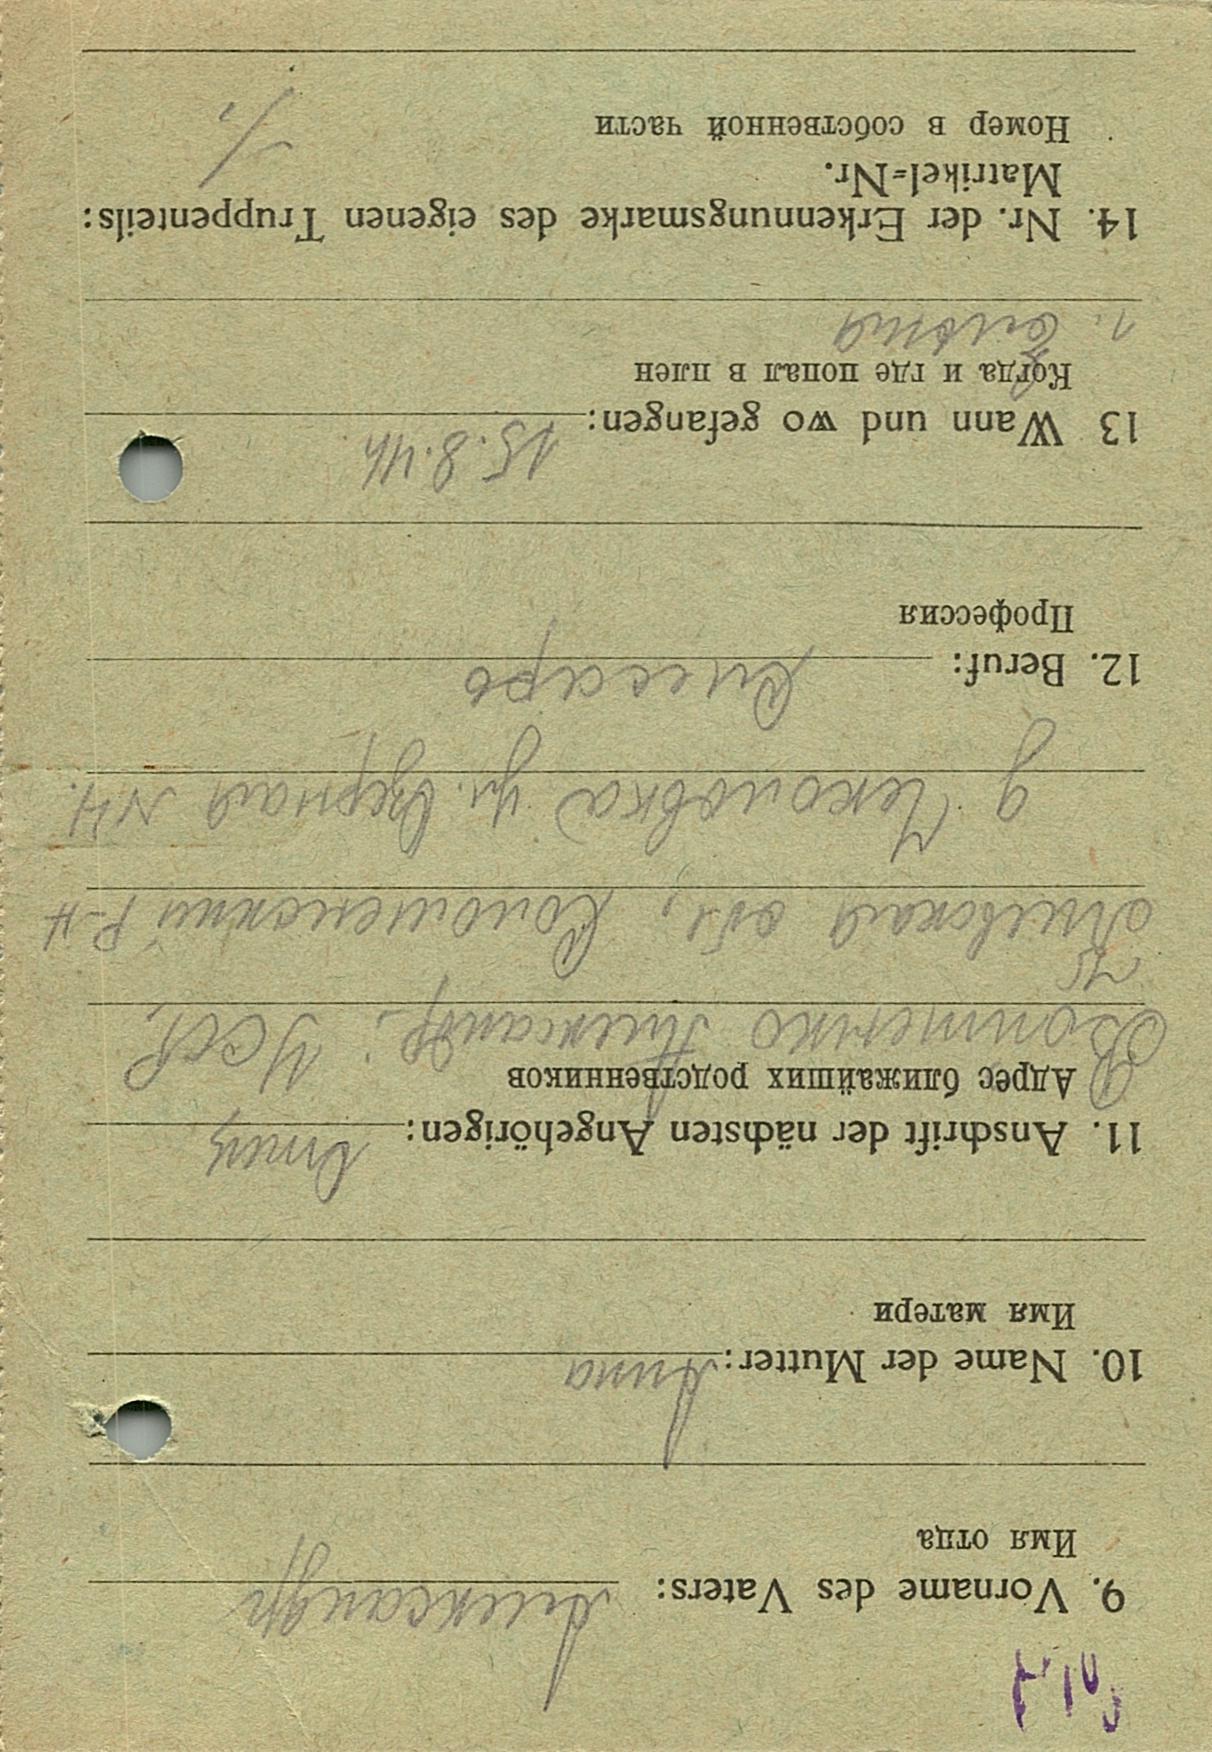 9. Vorname des Vaters: Александр
Имя отца
10. Name der Mutter: Анна
Имя матери
11. Anschrift der nächsten Angehörigen: Отец
Адрес ближайших родственников
Войтенко Александр. УССР,
обл, Р-Н
д ул. Озерная N4.
12. Beruf: слесарь
Профессия
13 Wann und wo gefangen: 15.8.44
Когда и где попал в плен
г.
14. Nr. der Erkennungsmarke des eigenen Truppenteils:
Matrikel-Nr.
Номер в собственной части